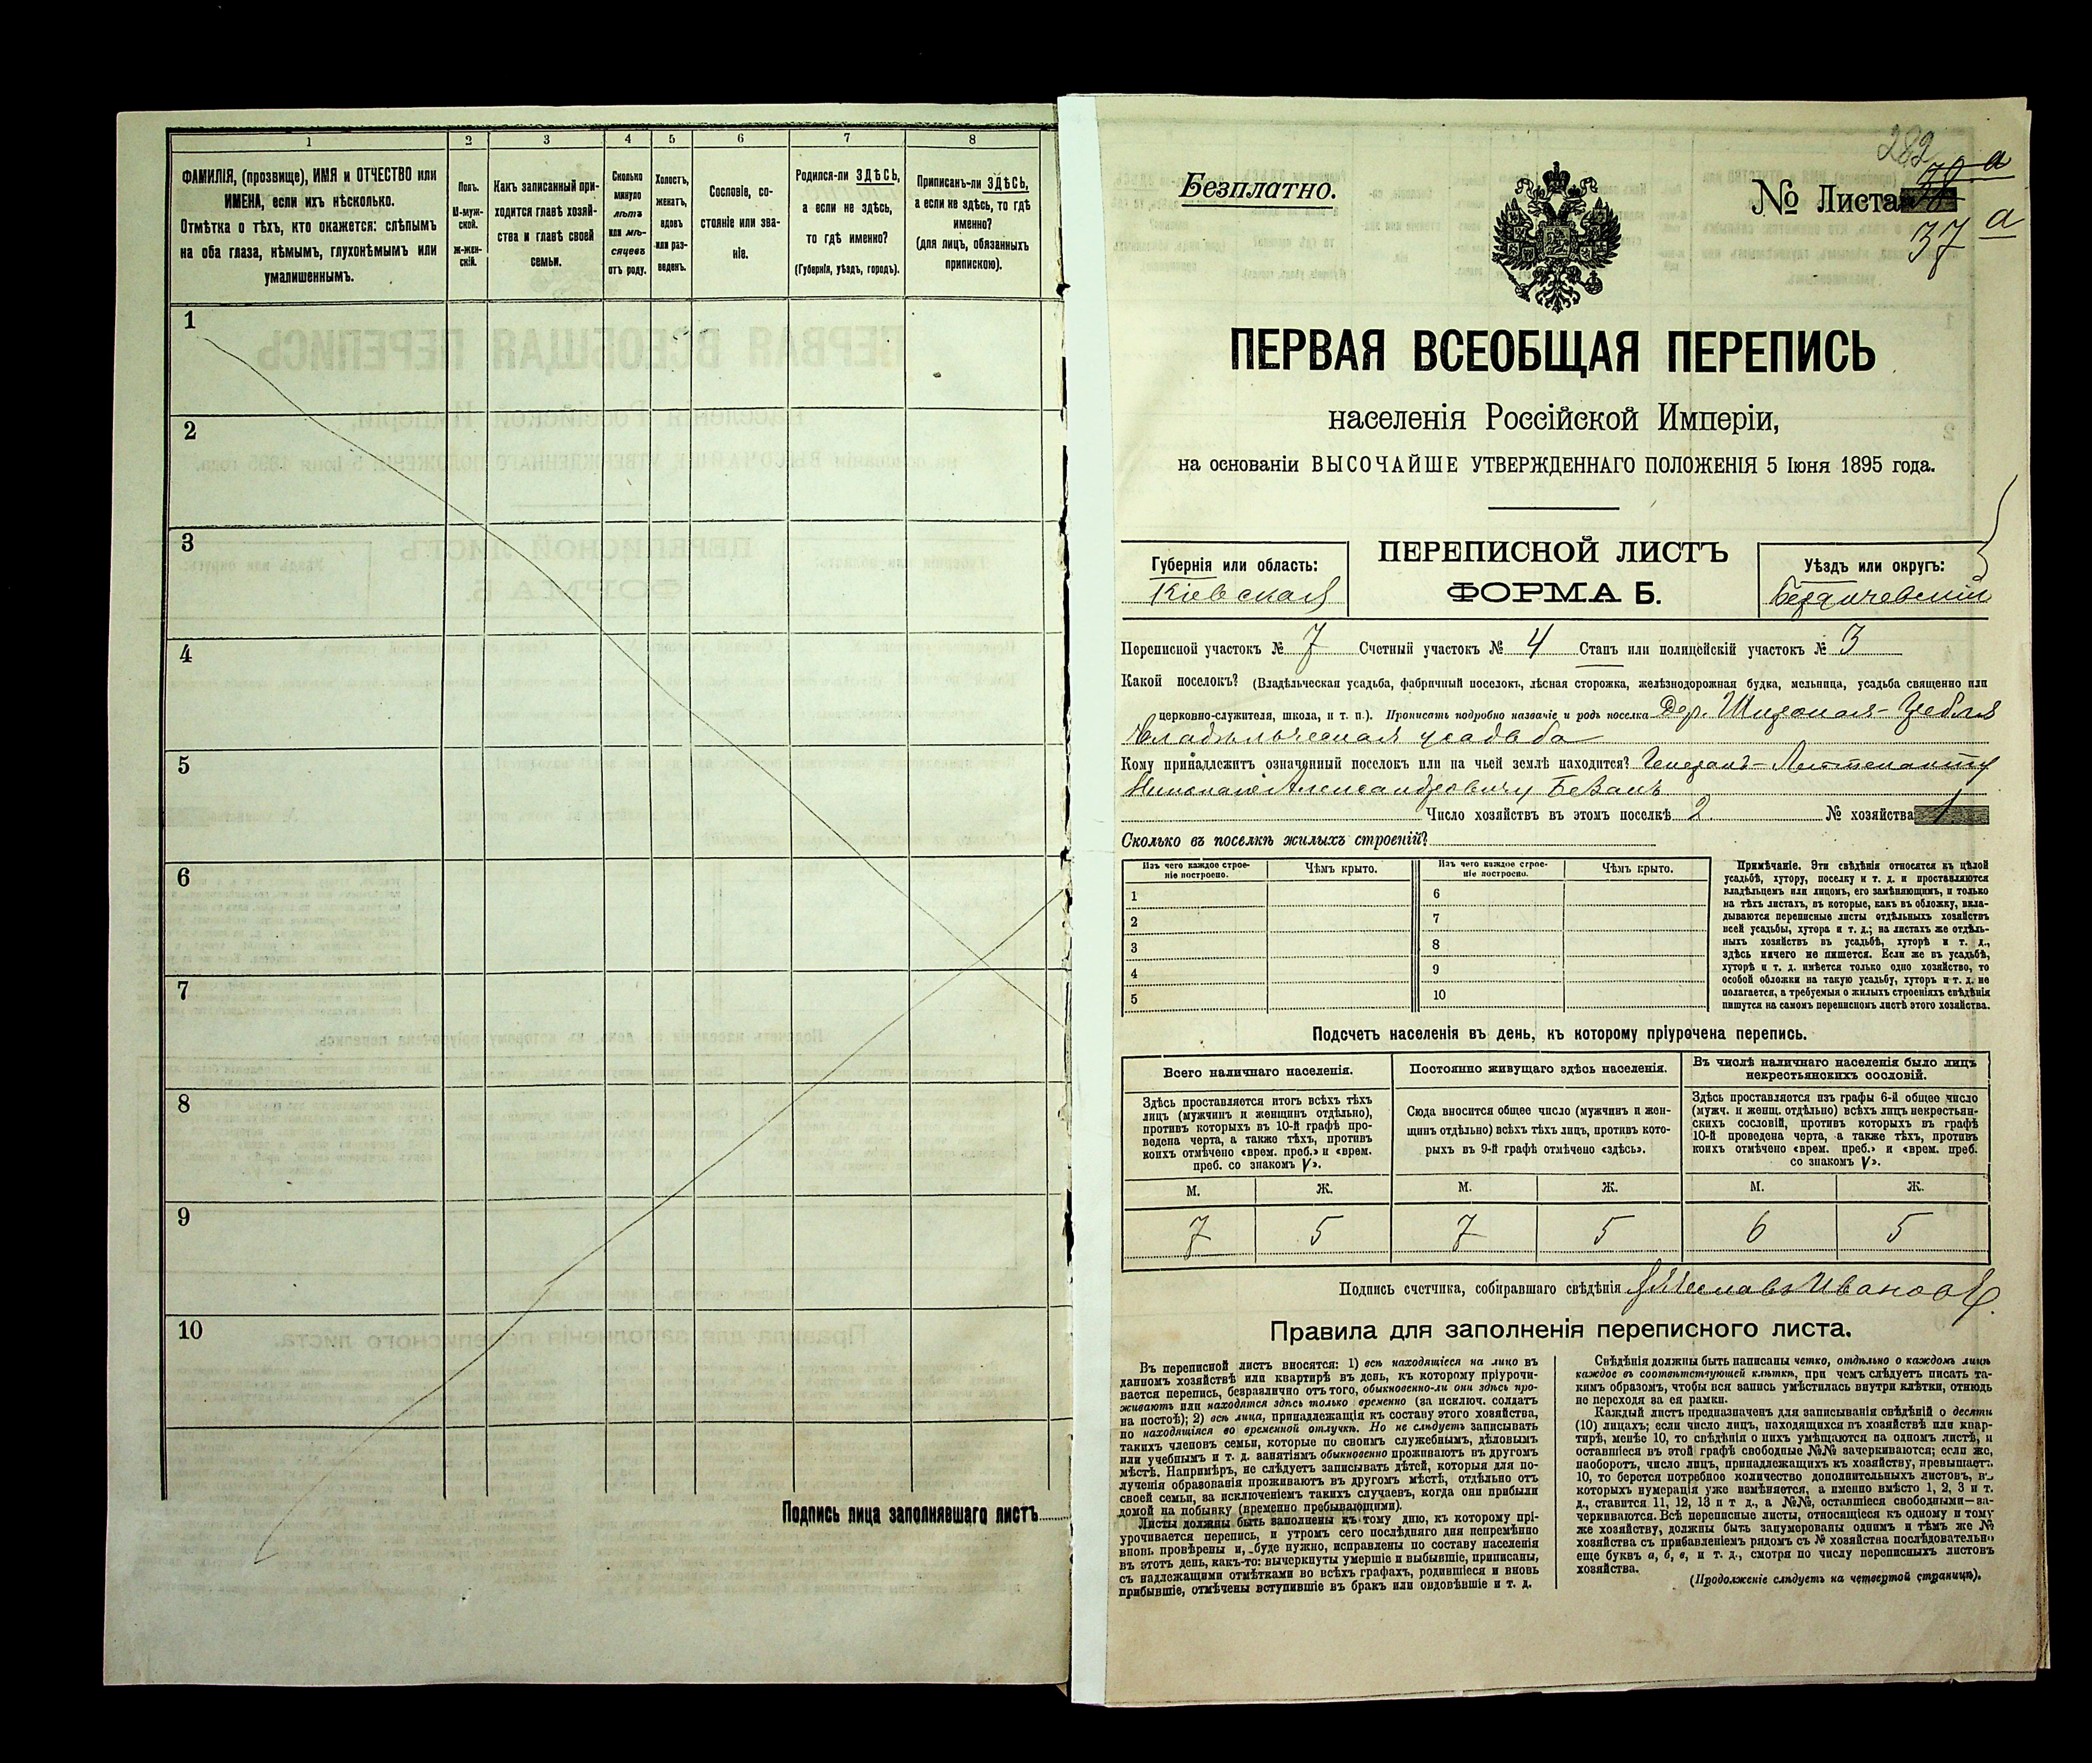 1
2
3
4
5
6
7
8
ФАМИЛІЯ, (прозвище), ИМЯ и ОТЧЕСТВО или
ИМЕНА, если ихъ нѣсколько.
Отмѣтка о тѣхъ, кто окажется: слѣпымъ
на оба глаза, нѣмымъ, глухонѣмымъ или
умалишеннымъ.
Полъ.
М-муж-
ской.
ж-жен-
скій.
Какъ записанный при-
ходится главѣ хозяй-
ства и главѣ своей
семьи.
Сколько
минуло
лѣтъ
или мѣ-
сяцевъ
отъ роду.
Холостъ,
женатъ,
вдовъ
или раз-
веденъ.
Сословіе, со-
стояніе или зва-
ніе.
Родился-ли ЗДѢСЬ,
а если не здѣсь,
то гдѣ именно?
(Губернія, уѣздъ, городъ).
Приписанъ-ли ЗДѢСЬ,
а если не здѣсь, то гдѣ
именно?
(для лицъ, обязанныхъ
припискою).
1
2
3
4
5
6
7
8
9
10
Подпись лица заполнявшаго листъ
282
Безплатно.
№ Листа
37 а
ПЕРВАЯ ВСЕОБЩАЯ ПЕРЕПИСЬ
населенія Россійской Имперіи,
на основаніи ВЫСОЧАЙШЕ УТВЕРЖДЕННАГО ПОЛОЖЕНІЯ 5 Іюня 1895 года.
Губернія или область:
Кіевская
ПЕРЕПИСНОЙ ЛИСТЪ
ФОРМА Б.
Уѣздъ или округъ:
Бердичевскій
Переписной участокъ № 7 Счетный участокъ № 4 Станъ или полицейскій участокъ № 3
Какой поселокъ? (Владѣльческая усадьба, фабричный поселокъ, лѣсная сторожка, желѣзнодорожная будка, мельница, усадьба священно или
церковно-служителя, школа, и т. п.). Прописать подробно названіе и родъ поселка Дер. Широкая-Гребля
Владѣльческая усадьба
Кому принадлежитъ означенный поселокъ или на чьей землѣ находится? Генералъ-Лейтенанту
Николаю Александровичу
Число хозяйствъ въ этомъ поселкѣ 2 № хозяйства 1
Сколько въ поселкѣ жилыхъ строеній?
Изъ чего каждое строе-
ніе построено.
Чѣмъ крыто.
Изъ чего каждое строе-
ніе построено.
Чѣмъ крыто.
1
2
3
4
5
6
7
8
9
10
Примѣчаніе. Эти свѣдѣнія относятся къ цѣлой
усадьбѣ, хутору, поселку и т. д. и проставляются
владѣльцемъ или лицомъ, его замѣняющимъ, и только
на тѣхъ листахъ, въ которые, какъ въ обложку, вкла-
дываются переписные листы отдѣльныхъ хозяйствъ
всей усадьбы, хутора и т. д.; на листахъ же отдѣль-
ныхъ хозяйствъ въ усадьбѣ, хуторѣ и т. д.,
здѣсь ничего не пишется. Если же въ усадьбѣ,
хуторѣ и т. д. имѣется только одно хозяйство, то
особой обложки на такую усадьбу, хуторъ и т. д. не
полагается, а требуемыя о жилыхъ строеніяхъ свѣдѣнія
пишутся на самомъ переписномъ листѣ этого хозяйства.
Подсчетъ населенія въ день, къ которому пріурочена перепись.
Всего наличнаго населенія.
Постоянно живущаго здѣсь населенія.
Въ числѣ наличнаго населенія было лицъ
некрестьянскихъ сословій.
Здѣсь проставляется итогъ всѣхъ тѣхъ
лицъ (мужчинъ и женщинъ отдѣльно),
противъ которыхъ въ 10-й графѣ про-
ведена черта, а также тѣхъ, противъ
коихъ отмѣчено «врем. преб.» и «врем.
преб. со знакомъ V».
Сюда вносится общее число (мужчинъ и жен-
щинъ отдѣльно) всѣхъ тѣхъ лицъ, противъ кото-
рыхъ въ 9-й графѣ отмѣчено «здѣсь».
Здѣсь проставляется изъ графы 6-й общее число
(мужч. и женщ. отдѣльно) всѣхъ лицъ некрестьян-
скихъ сословій, противъ которыхъ въ графѣ
10-й проведена черта, а также тѣхъ, противъ
коихъ отмѣчено «врем. преб.» и «врем. преб.
со знакомъ V».
М. Ж. М. Ж. М. Ж.
7 5 7 5 6 5
Подпись счетчика, собиравшаго свѣдѣнія
Правила для заполненія переписного листа.
Въ переписной листъ вносятся: 1) всѣ находящіеся на лицо въ
данномъ хозяйствѣ или квартирѣ въ день, къ которому пріурочи-
вается перепись, безразлично отъ того, обыкновенно-ли они здѣсь про-
живаютъ или находятся здѣсь только временно (за исключ. солдатъ
на постоѣ); 2) всѣ лица, принадлежащія къ составу этого хозяйства,
но находящіяся во временной отлучкѣ. Но не слѣдуетъ записывать
такихъ членовъ семьи, которые по своимъ служебнымъ, дѣловымъ
или учебнымъ и т. д. занятіямъ обыкновенно проживаютъ въ другомъ
мѣстѣ. Напримѣръ, не слѣдуетъ записывать дѣтей, которыя для по-
лученія образованія проживаютъ въ другомъ мѣстѣ, отдѣльно отъ
своей семьи, за исключеніемъ такихъ случаевъ, когда они прибыли
домой на побывку (временно пребывающими).
Листы должны быть заполнены къ тому дню, къ которому прі-
урочивается перепись, и утромъ сего послѣдняго дня непремѣнно
вновь провѣрены и, буде нужно, исправлены по составу населенія
въ этотъ день, какъ-то: вычеркнуты умершіе и выбывшіе, приписаны,
съ надлежащими отмѣтками во всѣхъ графахъ, родившіеся и вновь
прибывшіе, отмѣчены вступившіе въ бракъ или овдовѣвшіе и т. д.
Свѣдѣнія должны быть написаны четко, отдѣльно о каждомъ лицѣ
каждое въ соотвѣтствующей клѣткѣ, при чемъ слѣдуетъ писать та-
кимъ образомъ, чтобы вся запись умѣстилась внутри клѣтки, отнюдь
не переходя за ея рамки.
Каждый листъ предназначенъ для записыванія свѣдѣній о десяти
(10) лицахъ; если число лицъ, находящихся въ хозяйствѣ или квар-
тирѣ, менѣе 10, то свѣдѣнія о нихъ умѣщаются на одномъ листѣ, и
оставшіеся въ этой графѣ свободные №№ зачеркиваются; если же,
наоборотъ, число лицъ, принадлежащихъ къ хозяйству, превышаетъ
10, то берется потребное количество дополнительныхъ листовъ, въ
которыхъ нумерація уже измѣняется, а именно вмѣсто 1, 2, 3 и т.
д., ставится 11, 12, 13 и т д., а №№, оставшіеся свободными—за-
черкиваются. Всѣ переписные листы, относящіеся къ одному и тому
же хозяйству, должны быть занумерованы однимъ и тѣмъ же №
хозяйства съ прибавленіемъ рядомъ съ № хозяйства послѣдовательно
еще буквъ а, б, в, и т. д., смотря по числу переписныхъ листовъ
хозяйства.
(Продолженіе слѣдуетъ на четвертой страницѣ).